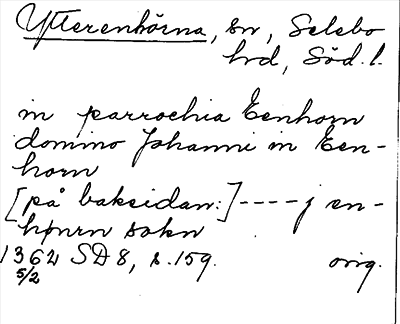 Ytterenhörna, sn, Selebo
hd, Söd. l.
in parrochia Eenhorn
domino Johanni in Een-
horn
[på baksidan:]----j en-
hørn sokn
1362 SD 8, s. 159. orig.
5/2